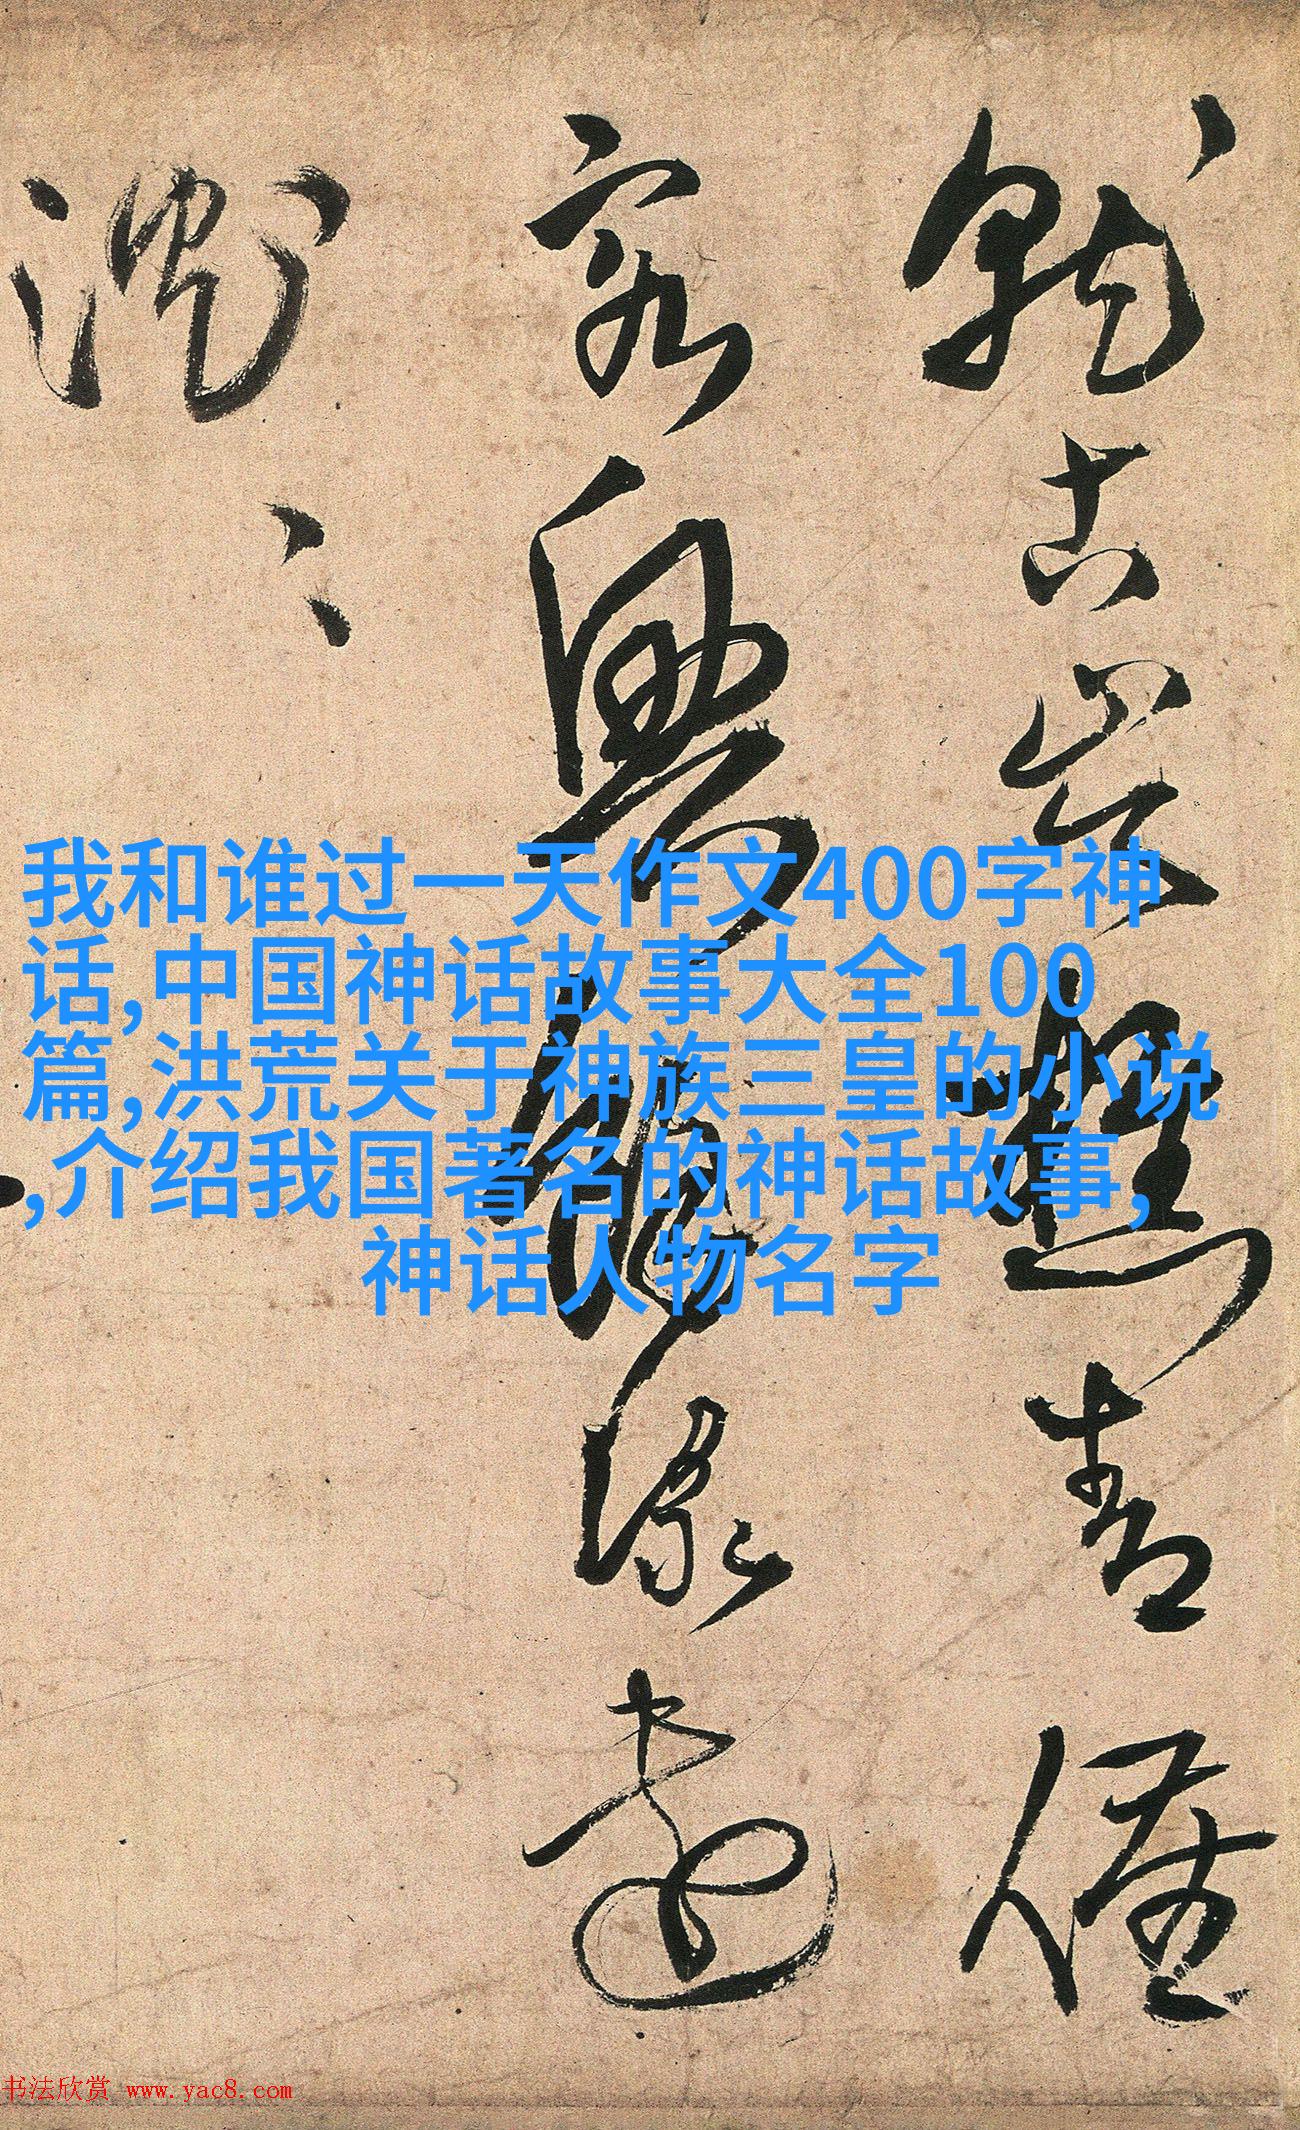 就古岩樵青僅
容與
緑
淵〻
我和谁过一天作文400字神
话,中国神话故事大全100
篇,洪荒关于神族三皇的小说
,介绍我国著名的神话故事,
神话人物名字
书法欣赏 www.yac8.com